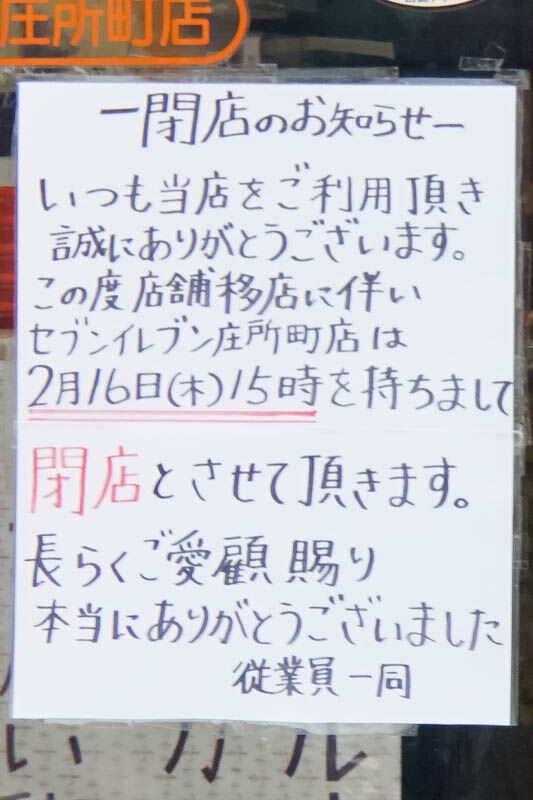 庄所町店
ー閉店のお知らせー
いつも当店をご利用頂き
誠にありがとうございます。
この度店舗移店に伴い
セブンイレブン庄所町店は
2月16日(木)15時を持ちまして
閉店とさせて頂きます。
長らくご愛顧賜り
本当にありがとうございました
従業員一同